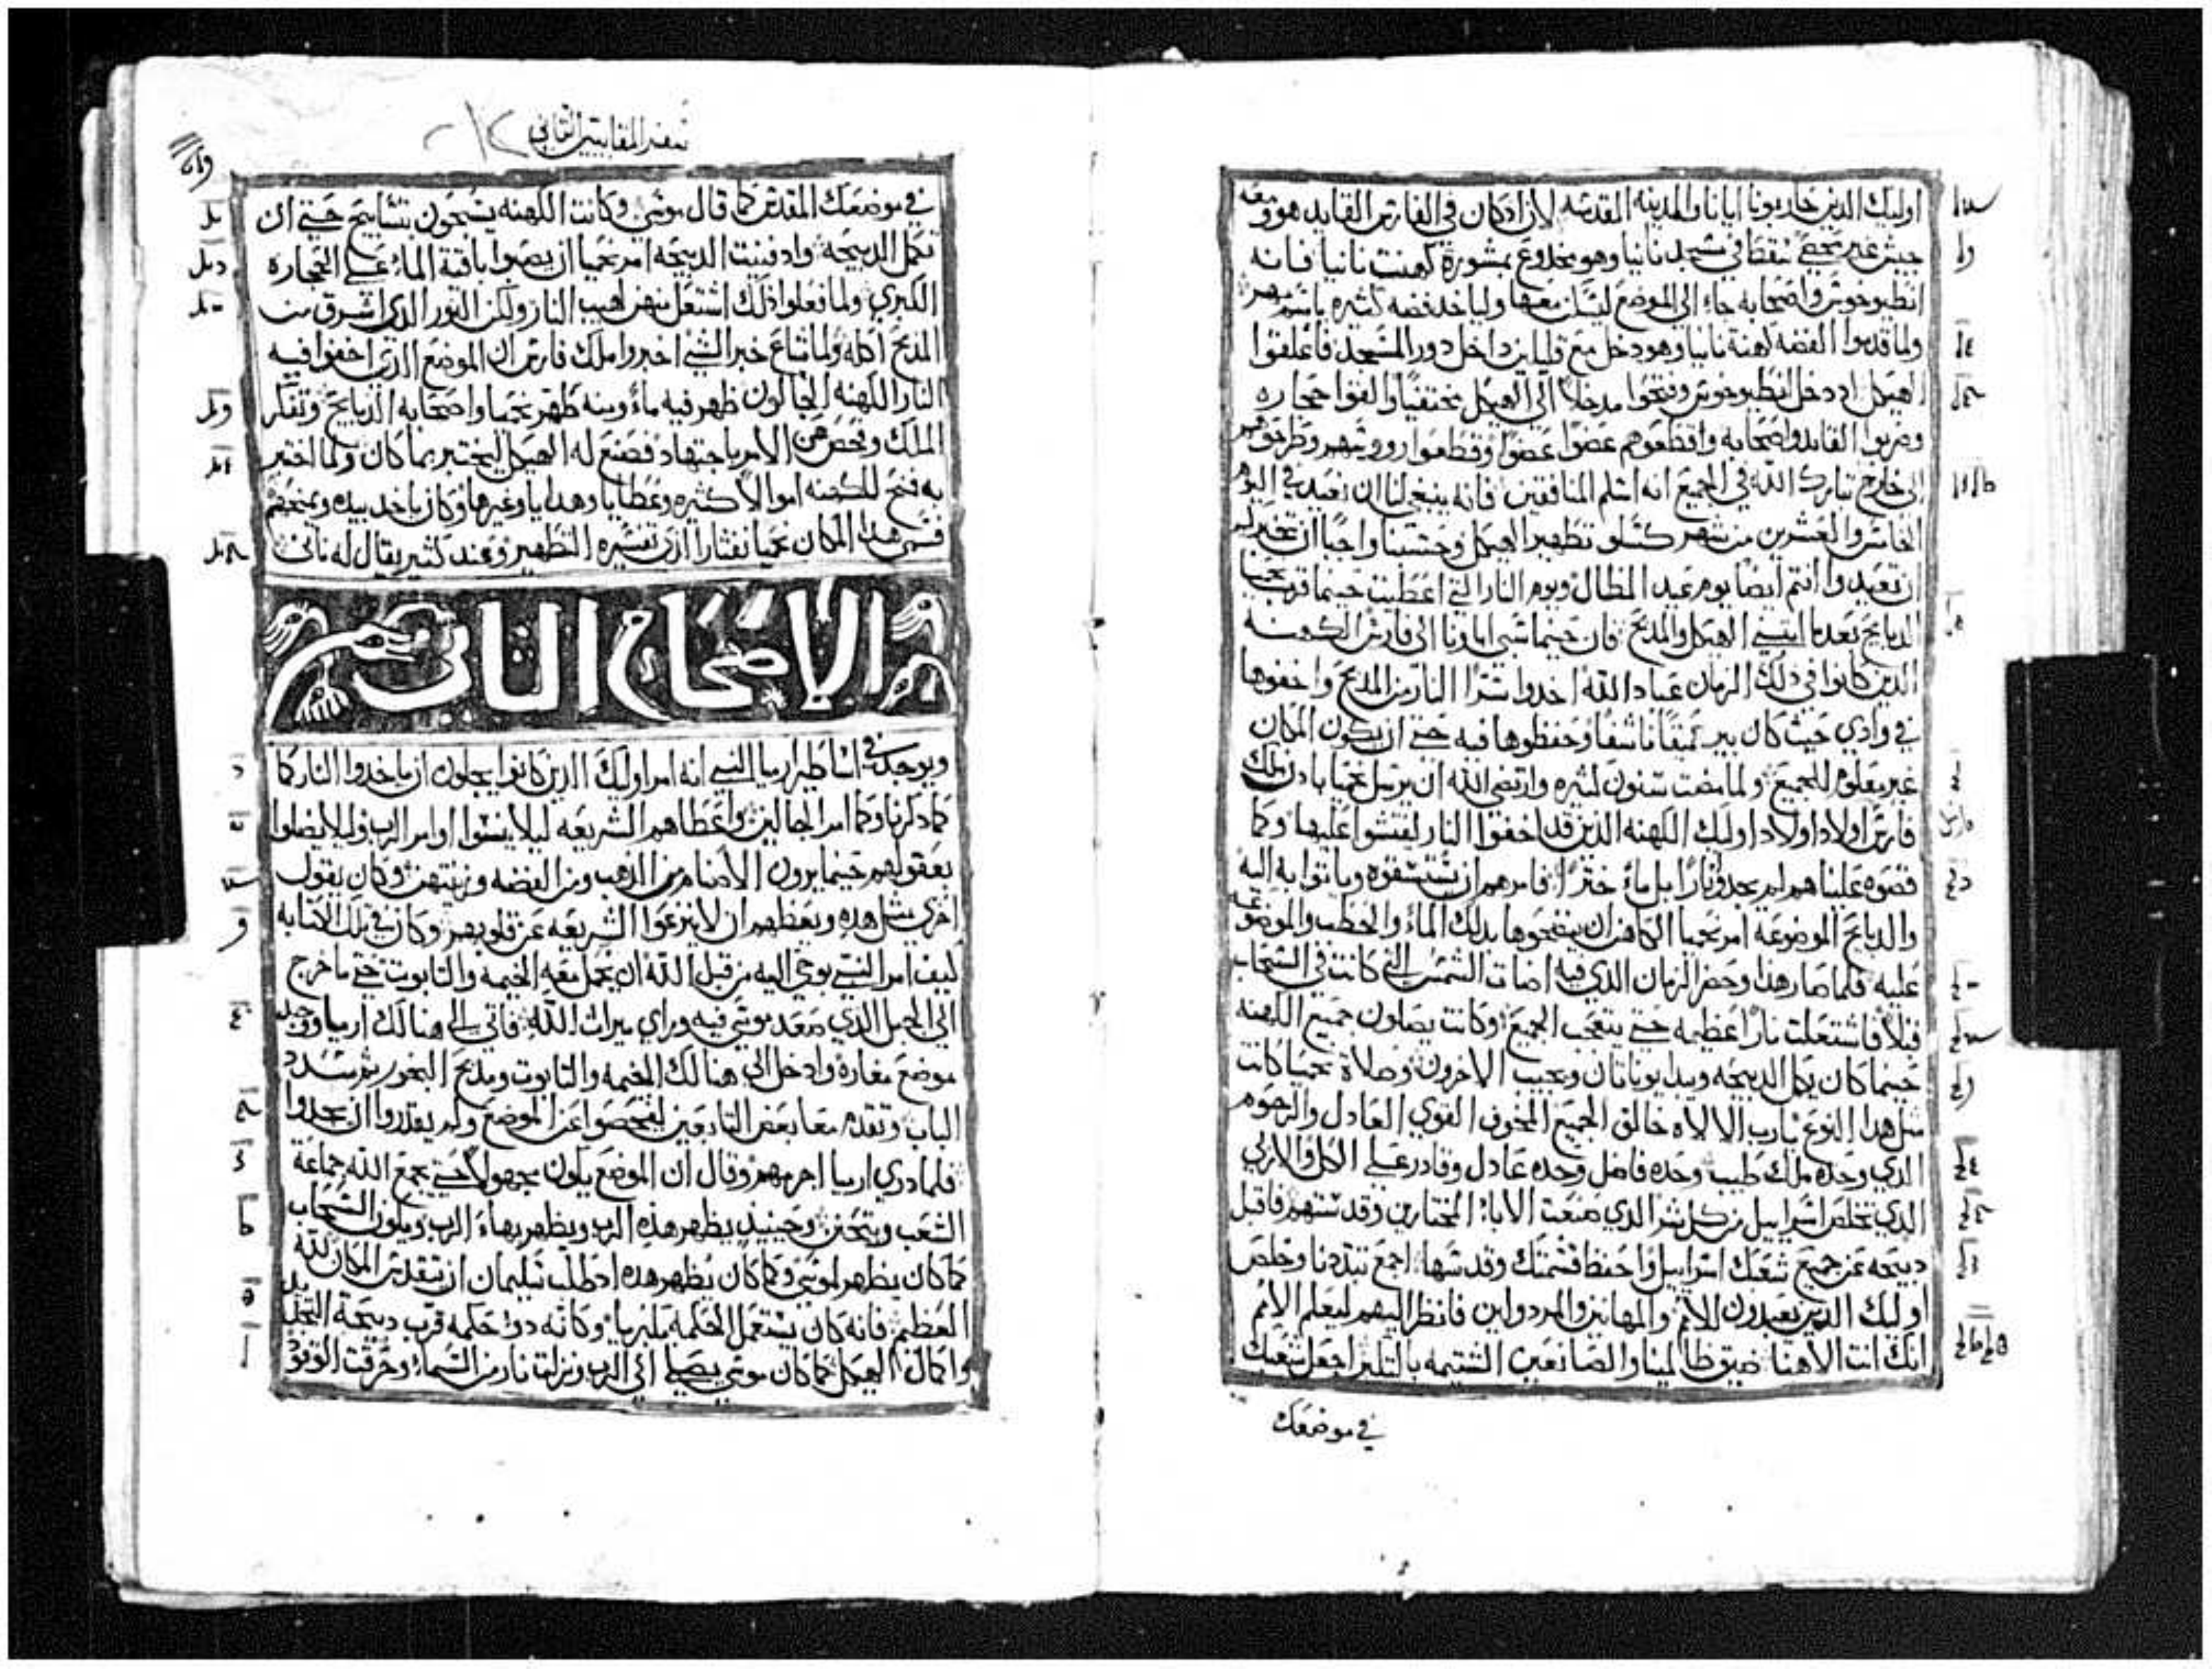 اوليك الذين حاربونا ايانا والمدينه المقدسه لان اذ كان في الفارس القايد هو ومعه
جيش غير محصي سقط في مسجد نانيا وهو مخدوع بمشورة كهنت نانيا فانه
انطيوخوس واصحابه جاء الي الموضع ليسكن معها ولياخد فضه كثيره باسم مهر
ولما قدموا الفضه كهنة نانيا وهو دخل مع قليلين داخل دور المسجد فاغلقوا
الهيكل اد دخل انطيوخوس وفتحوا مدخلا الي الهيكل مختفيا والقوا حجاره
وضربوا القايد واصحابه واقطعوهم عضوا عضوا وقطعوا رووسهم وطرحوهم
الي خارج تبارك الله في الجميع انه اسلم المنافقين فانه ينبغي لنا ان نعيد في اليوم
الخامس والعشرين من شهر كسلو تطهير الهيكل وحسبنا واجبا ان نخبركم
ان تعيدوا انتم ايضا يوم عيد المظال ويوم النار التي اعطيت حينما قرب نحميا
الدبايح بعدما ابتني الهيكل والمدبح فان حينما سبي اباونا الي فارس الكهنه
الدين كانوا في دلك الزمان عباد الله اخدوا سرا النار من المدبح واخفوها
في وادي حيث كان بير عميقا ناشفا وحفظوها فيه حتي ان يكون المكان
غير معلوم للجميع ولما مضت سنون كثيره وارتضي الله ان يرسل نحميا بادن ملك
فارس اولاد اولاد اوليك الكهنه الدين قد اخفوا النار لفتشوا عليها وكما
قصوه علينا هم لم يجدوا نارا بل ماء خترا فامرهم ان يستسقوه وياتوا به اليه
والدبايح الموضوعة امر نحميا الكاهن ان ينضحوها بدلك الماء والحطب والموضوعه
عليه فلما صار هدا وحضر الزمان الدي فيه اضات الشمس التي كانت في السحاب
قبلا فاشتعلت نارا عظيمه حتي يتعجب الجميع وكانت يصلون جميع الكهنه
حينما كان يكمل الدبيحه ويبدا يوناتان ويجيب الاخرون وصلاة نحميا كانت
مثل هدا النوع يارب الالاه خالق الجميع المخوف القوي العادل والرحوم
الدي وحده ملك طيب وحده فاضل وحده عادل وقادر علي الكل والازلي
الدي تخلص اسراييل من كل شر الدي صنعت الابا المختارين وقدستهم فاقبل
دبيحه عن جميع شعبك اسراييل واحفظ قسمتك وقدسها اجمع تبددنا وخلص
اوليك الدين يعبدون للامم والمهانين والمردولين فانظر اليهم ليعلم الامم
انك انت الاهنا ضيق ظالمينا والصانعين الشتيمه بالتكبر اجعل شعبك
في موضعك
سفر المقابيين الثاني
في موضعك المقدس كما قال موسي وكانت الكهنه يسبحون بتسابيح حتي ان
تكمل الدبيحه واد فنيت الدبيحه امر نحميا ان يصبوا باقية الماء علي الحجاره
الكبري ولما فعلوا دلك اشتعل منهن لهيب النار ولكن النور الدي اشرق من
المدبح اكله ولما شاع خبر الشي اخبروا ملك فارس ان الموضع الدي اخفوا فيه
النار الكهنه الجالون ظهر فيه ماء ومنه طهر نحميا واصحابه الدبايح وتفكر
الملك وفحص عن الامر باجتهاد فصنع له الهيكل ليختبر بما كان ولما اختبر
به فتح للكهنه اموالا كثيره وعطايا وهدايا وغيرها وكان ياخد بيده ويمنحهم
فسمي هدا المكان نحميا نفثار الدي تفسيره التطهير وعند كثير يقال له نافي
الاصحاح الثاني
ويوجد في اساطير ارميا النبي انه امر اوليك الدين كانوا يجلون ان ياخدوا النار كما
كما دكرنا وكما امر الجالين واعطاهم الشريعه ليلا ينسوا اوامر الرب وليلا يضلوا
بعقولهم حينما يرون الاصنام من الدهب ومن الفضه وزينتهن وكان يقول
اخري مثل هده ويعظهم ان لا ينزعوا الشريعه عن قلوبهم وكان في تلك الكتابه
كيف امر النبي بوحي اليه من قبل الله ان يحمل معه الخيمه والتابوت حتي ما خرج
الي الجبل الدي صعد موسي فيه وراي ميراث الله فاتي الي هنالك ارميا ووجد
موضع مغاره وادخل الي هنالك الخيمه والتابوت ومدبح البخور ثم سدد
الباب وتقدم معا بعض التابعين ليفحصوا عن الموضع ولم يقدروا ان يجدوا
فلما دري ارميا اجرمهم وقال ان الموضع يكون مجهولا حتي يجمع الله جماعة
الشعب ويتحنن وحينيد يظهر هده الرب ويظهر بهاء الرب ويكون السحاب
كما كان يظهر لموسي وكما كان يظهر هده اد طلب سليمان ان يتقدس المكان لله
العظيم فانه كان يستعمل الحكمه مكبريا وكانه دوا حكمه قرب دبيحة التجديد
واكمال الهيكل كما كان موسي يصلي الي الرب ونزلت نار من السماء وحرقت الوقود